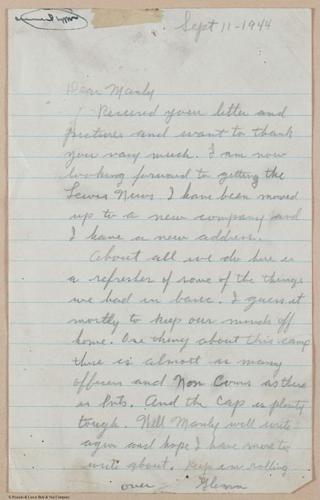 Sept 11-1944
Dear Manly
Received your letter and
pictures and want to thank
you vary much. I am now
looking forward to getting the
Lewis News. I have been moved
up to a new company and
I have a new address.
About all we do here is
a refresher of some of the things
we had in basic. I guess it
mortly to keep our minds off
home. One thing about this camp
there is almost as many
officers and Non Coms as there
is Pvts. And the Cap is plenty
tough. Well Manly will write
again and hope I have more to
write about. Keep em rolling
over - Glenn